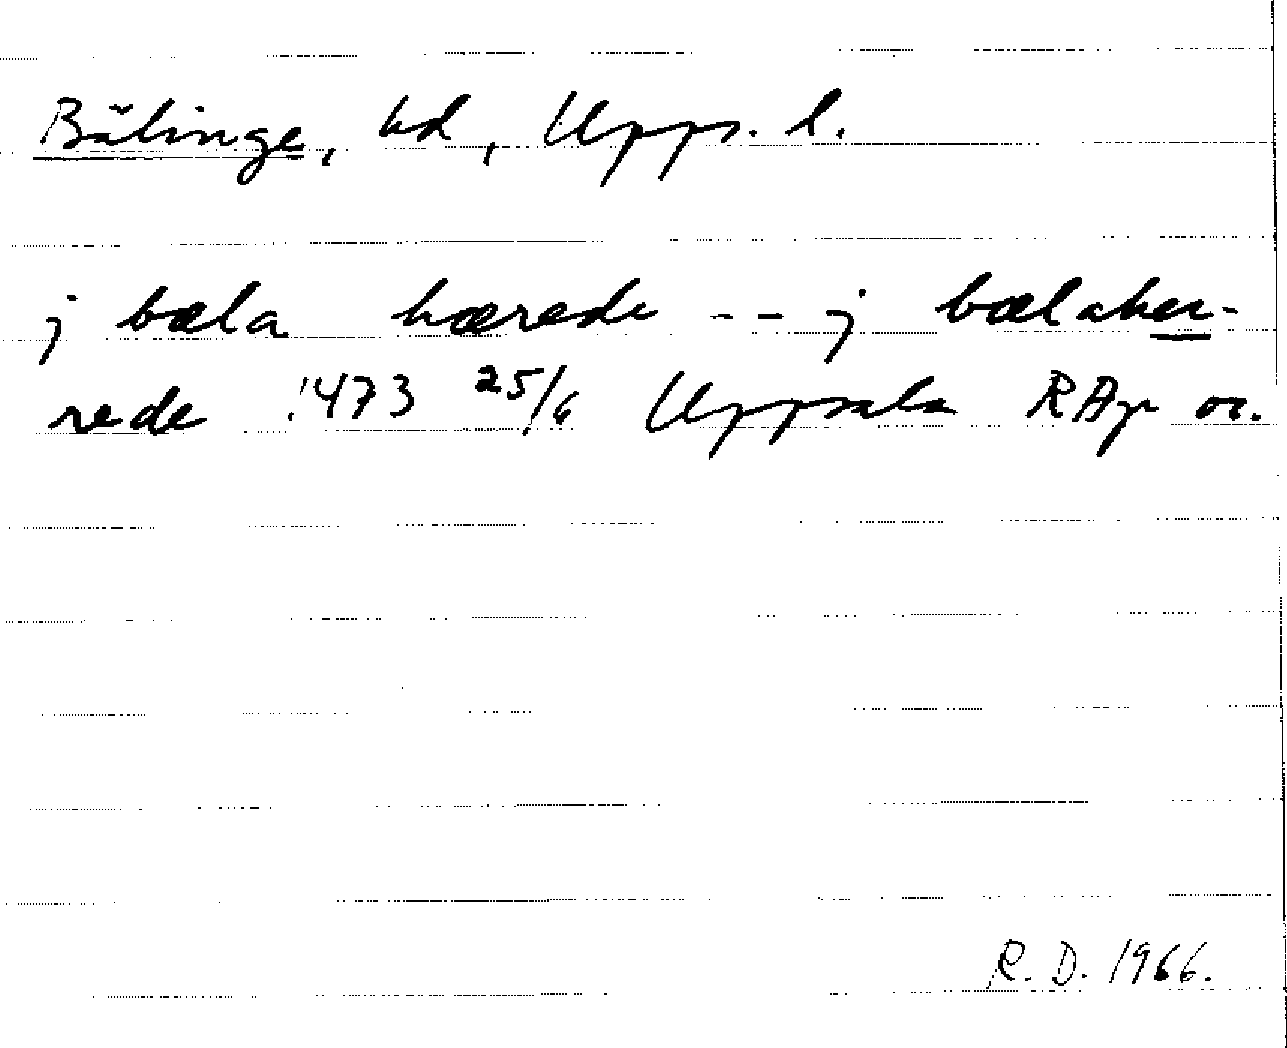 Bälinge, hd, Upps. l.
j bæla hærede -- j bælaher-
rede 1473 25/6 Uppsala RAp or.
R. D. 1966.